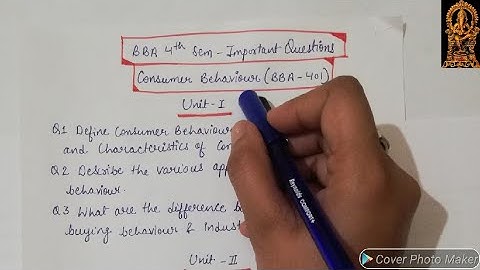 BBA 4th Sem - Important Questions
Consumer Behaviour (BBA-401)
Unit-I
Q1 Define Consumer Behaviour
and Characteristics of Con
Q2 Describe the various app
behaviour.
Q3 What are the difference b
buying behaviour & Indust
Unit-II
Reynolds
Cover Photo Maker